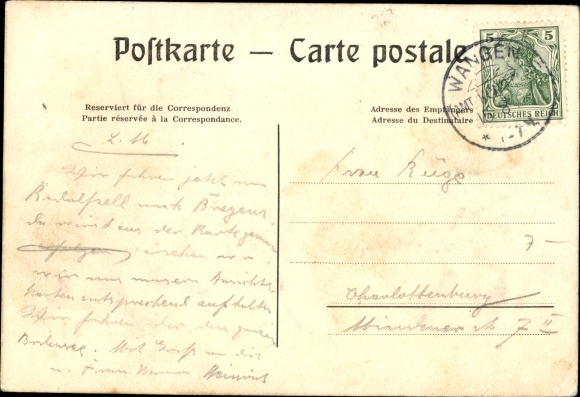 Postkarte — Carte postale
5 5
DEUTSCHES REICH
WANGEN
Reserviert für die Correspondenz
Partie réservée à la Correspondance.
Adresse des Empfängers
Adresse du Destinataire
L. M.
Wir fahren jetzt von
Radolfzell nach Bregenz.
Du wirst aus der Karte genau
ersehen wo
wir uns unsern Ansichts-
karten entsprechend aufhalten
Wir fahren über den ganzen
Bodensee. Mit Gruß an dich
u. Frau Heinrich
Frau Rüge
7
Charlottenburg
Mindener 7 II